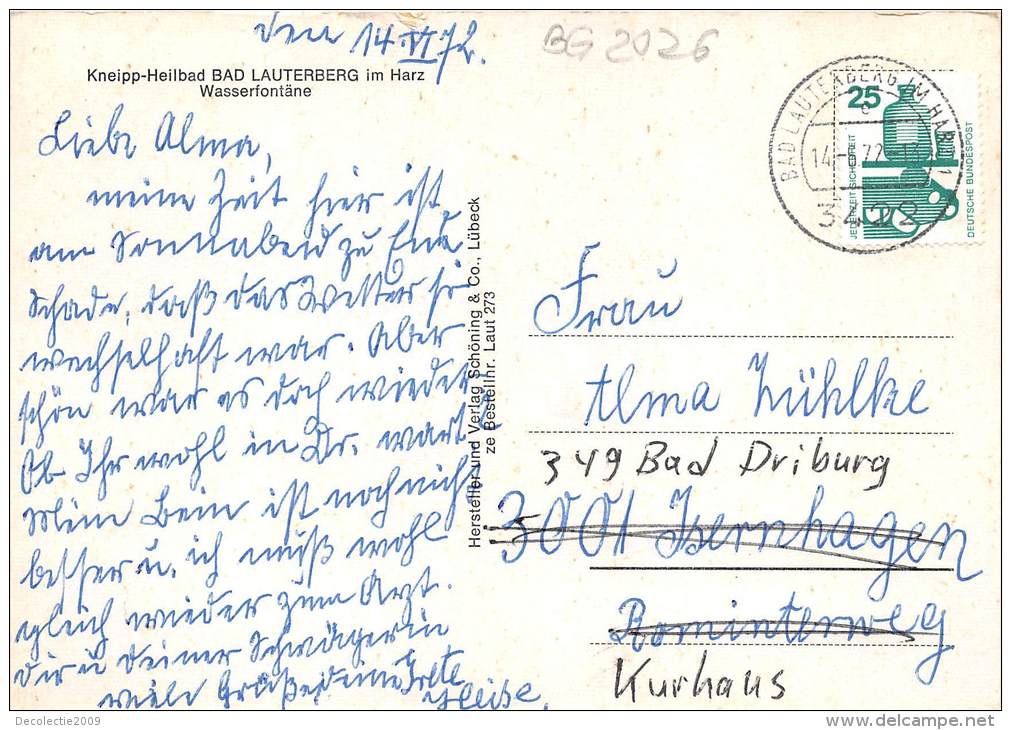 den 14.VI 72.
BG 2026
Kneipp-Heilbad BAD LAUTERBERG im Harz
Wasserfontäne
Liebe Alma,
meine Zeit hier ist
am Sonnabend zu Ende
Schade, daß das Wetter so
wechselhaft war. Aber
schön war es doch wieder
Ob Ihr wohl in Dr. wart
Mein Bein ist noch nicht
besser u. ich muß wohl
gleich wieder zum Arzt.
Dir u deiner Schwägerin
viele Grüße deine
Hersteller und Verlag Schöning & Co., Lübeck
ze Bestellnr. Laut 273
BAD LAUTERBERG IM HARZ 1
e
14.
72
3422
25
JEDERZEIT SICHERHEIT
DEUTSCHE BUNDESPOST
Frau
Alma Zühlke
349 Bad Driburg
3001 Isernhagen
Rominterweg
Kurhaus
Decolectie2009
www.delcampe.net